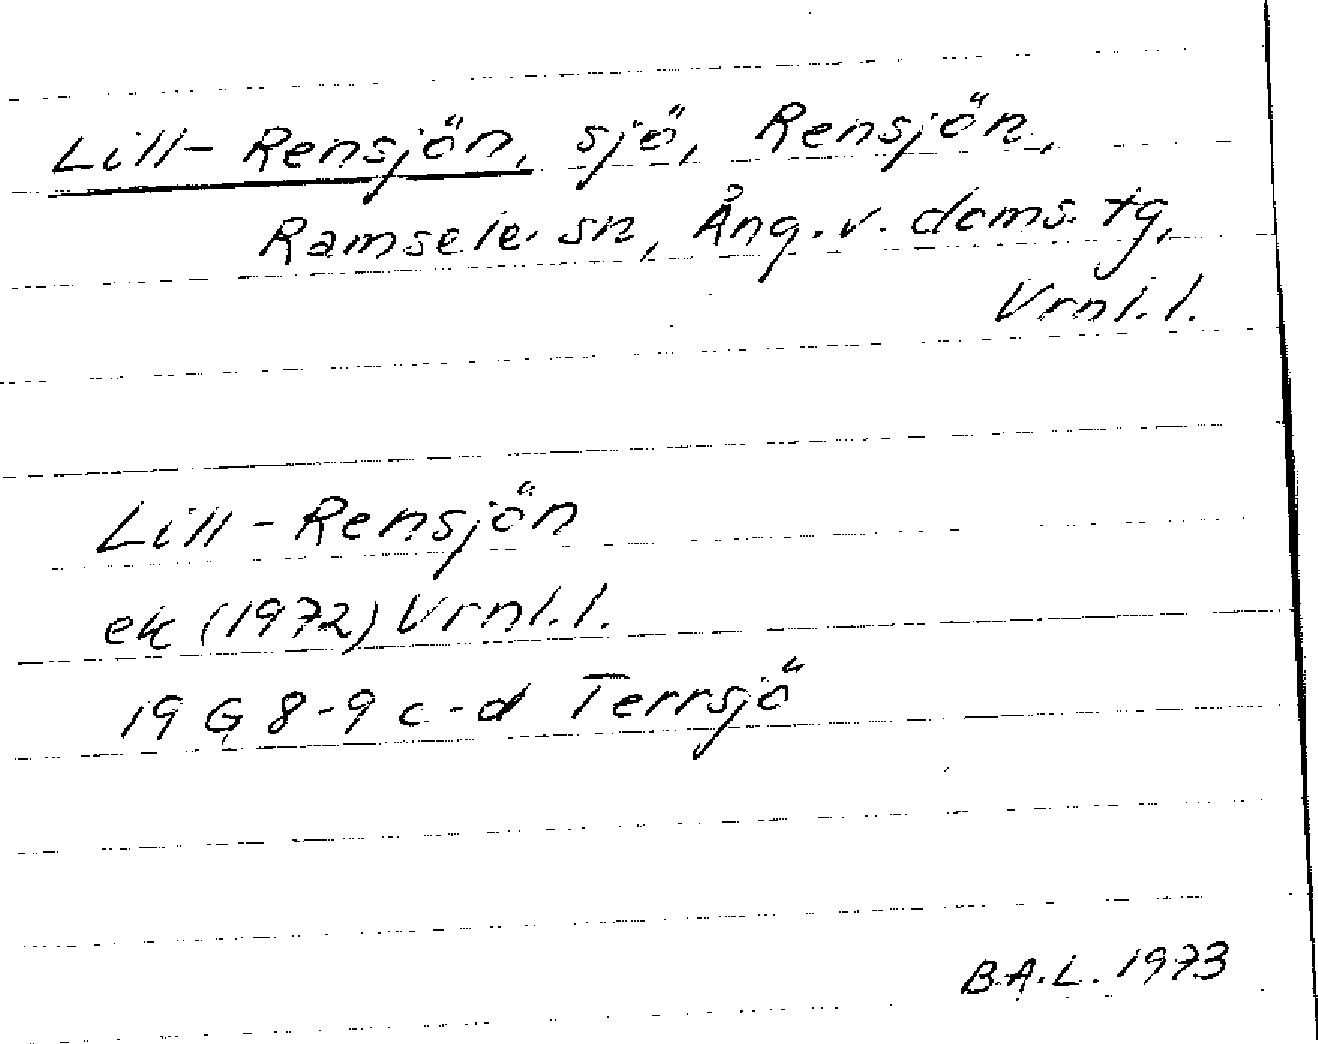 Lill-Rensjön, sjö, Rensjön,
Ramsele sn, Ång. v. doms. tg,
Vrml. l.
Lill-Rensjön
ek (1972) Vrnl. l.
19 G 8-9 c-d Terrsjö
B.A.L. 1973